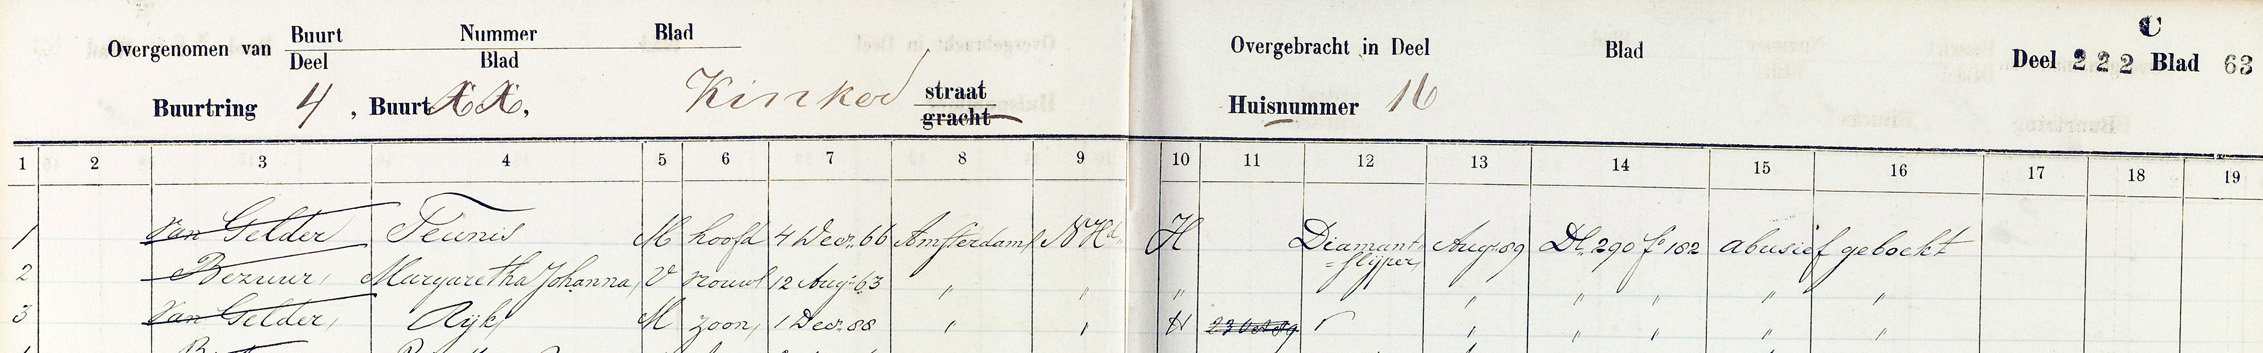 Overgenomen van Buurt Nummer Blad
Deel Blad
Overgebracht in Deel Blad
C
Deel 222 Blad 63
Buurtring 4, Buurt XX, Kinker straat
gracht
Huisnummer 16
1 2 3 4 5 6 7 8 9 10 11 12 13 14 15 16 17 18 19
1 van Gelder Teunis M hoofd 4 Decr. 66 Amsterdam NHd. H Diamant Aug. 89 Dl. 290 fo 182 abusief geboekt
=slijper,
2 Bezuur, Margaretha Johanna, V vrouw 12 Aug. 63 " " " " " " " "
3 van Gelder, Rijk M zoon, 1 Decr. 88 " " H 23 Oct 89 " " " " " "